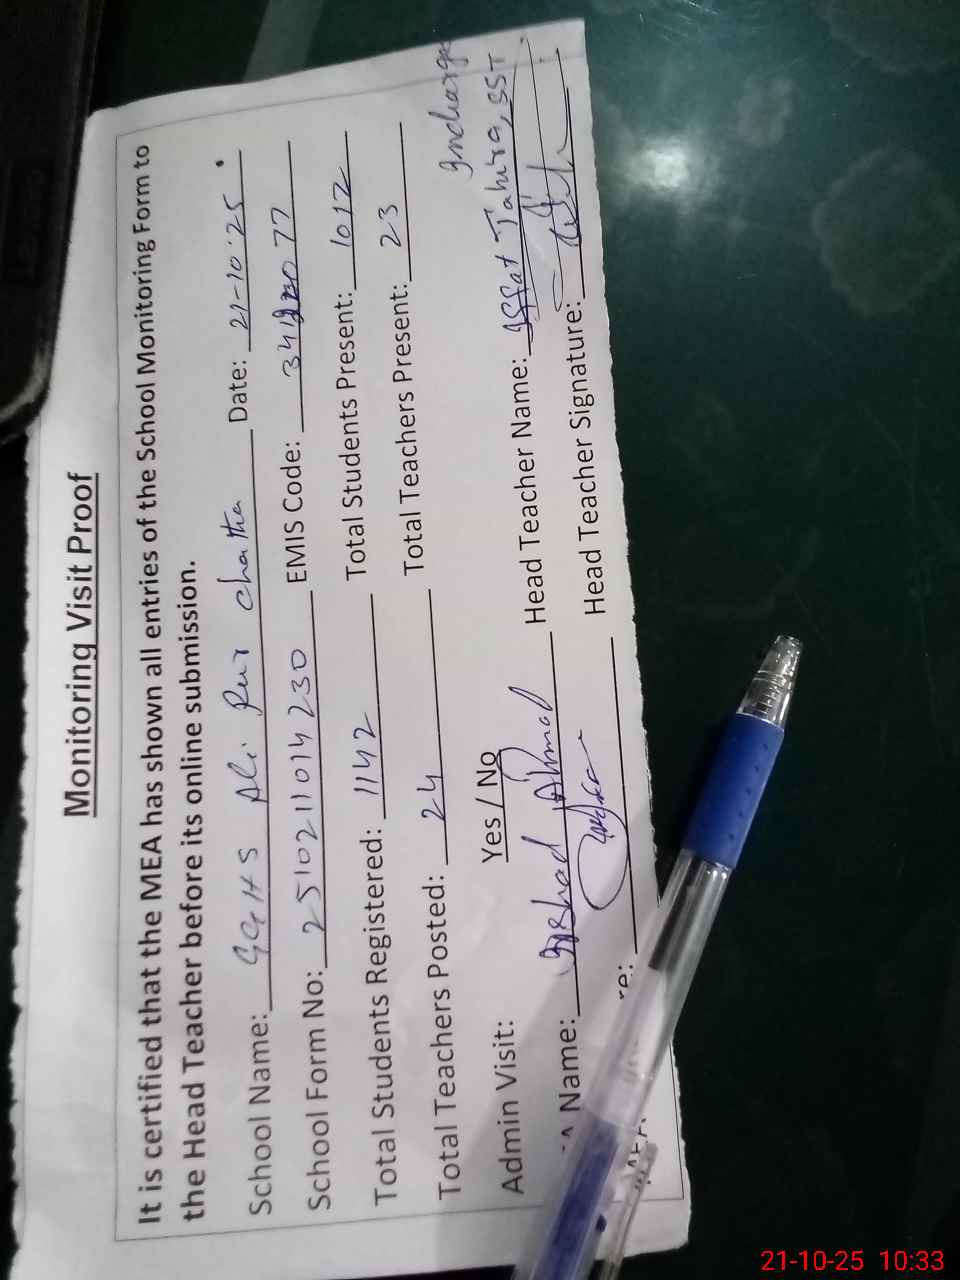 Monitoring Visit Proof
It is certified that the MEA has shown all entries of the School Monitoring Form to
the Head Teacher before its online submission.
School Name: GGHS Ali Pur Chatha Date: 21-10-25
School Form No: 2510211014230 EMIS Code:
Total Students Registered: 1142 Total Students Present: 1012
Total Teachers Posted: 24 Total Teachers Present: 23
Incharge
Admin Visit: Yes / No
Name: Irshad Ahmad Head Teacher Name: Iffat Tahira, SST
re: Head Teacher Signature:
21-10-25 10:33